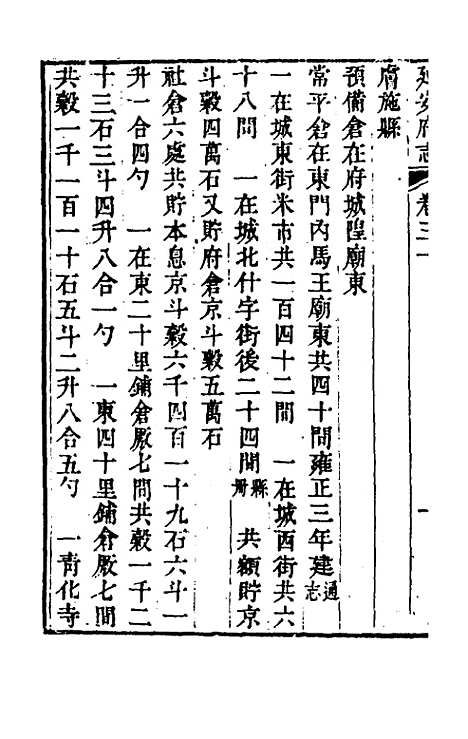 延安府志 卷三十 一
膚施縣
預備倉在府城隍廟東
常平倉在東門內馬王廟東共四十間雍正三年建通志
一在城東街米市共一百四十二間 一在城西街共六
十八間 一在城北什字街後二十四間縣冊 共額貯京
斗穀四萬石又貯府倉京斗穀五萬石
社倉六處共貯本息京斗穀六千四百一十九石六斗一
升一合四勺 一在東二十里鋪倉厫七間共穀一千二
十三石三斗四升八合一勺 一東四十里鋪倉厫七間
共穀一千一百一十石五斗二升八合五勺 一青化寺